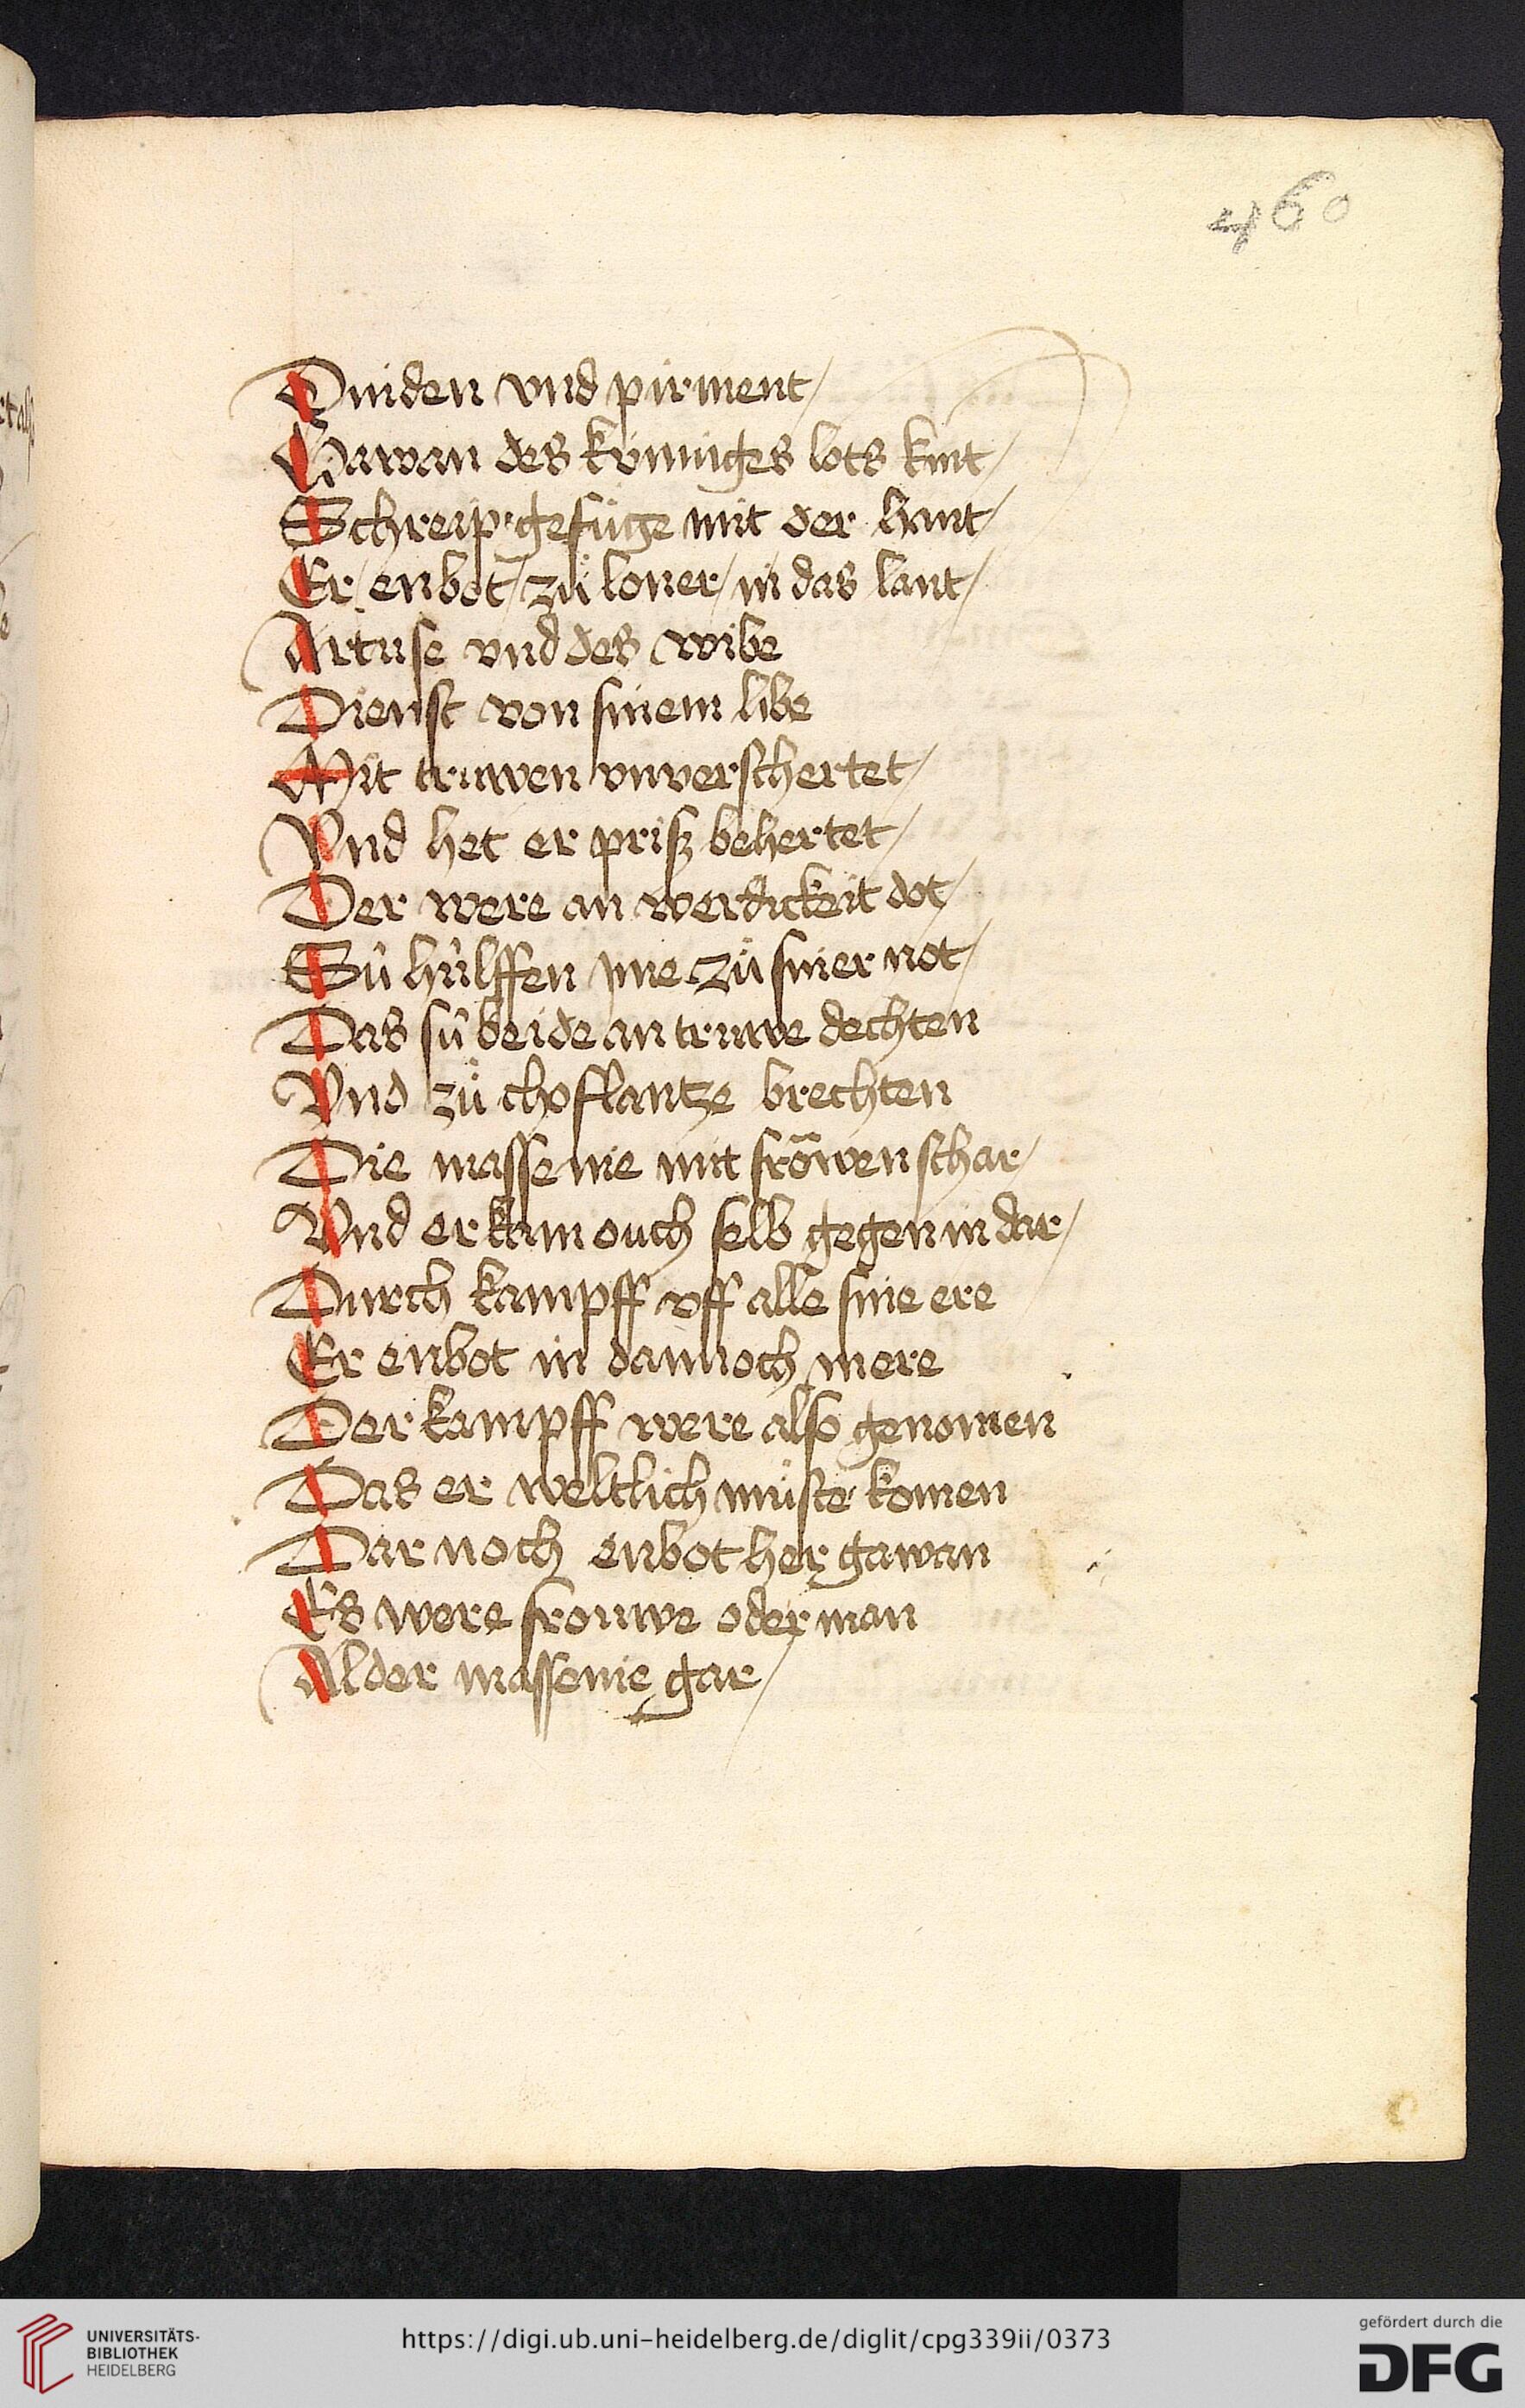 460
Tinden vnd pirment /
Gawan des kúnniges lots kint /
Schreip gefuͦge mit der hant /
Er / enbot / zuͦ loner / in das lant /
Artuse vnd des wibe
Dienst von sinem libe
Mit truwen vnverschertet /
Vnd het er prisz behertet /
Der were an werdickeit dot /
Sú húlffen yme zuͦ siner not /
Das sú beide an truwe dechten
Vnd zuͦ choflantze brechten
Die massenie mit froͤwen schar /
Vnd er kam ouch selb gegen in dar /
Durch kampff vff alle sine ere
Er enbot in dannoch mere
Der kampff were also genomen
Das er weltlich muͤste komen
Dar noch enbot her gawan
Es were frouwe oder man
Al der massenie gar /
UNIVERSITÄTS-
BIBLIOTHEK
HEIDELBERG
https://digi.ub.uni-heidelberg.de/diglit/cpg339ii/0373
gefördert durch die
DFG